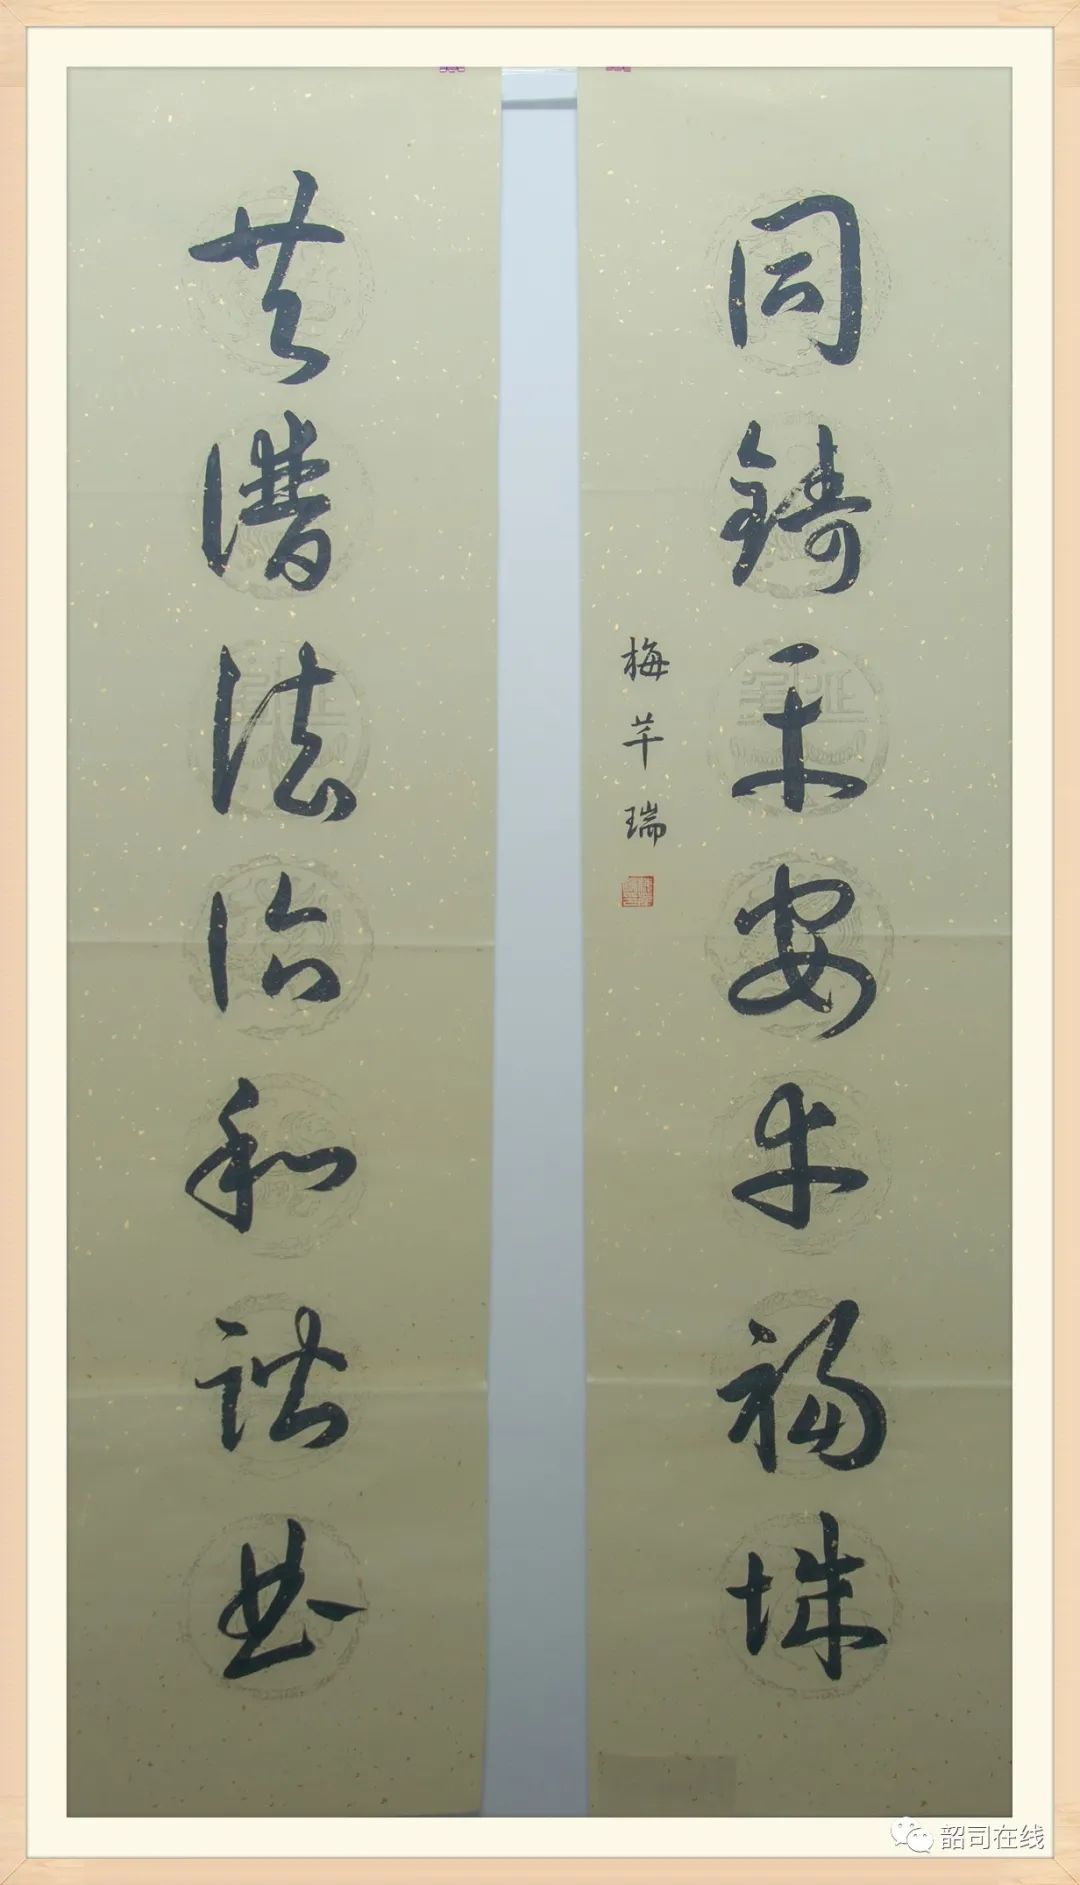 同鑄平安幸福城
梅芊瑞
共譜法治和諧曲
韶司在线